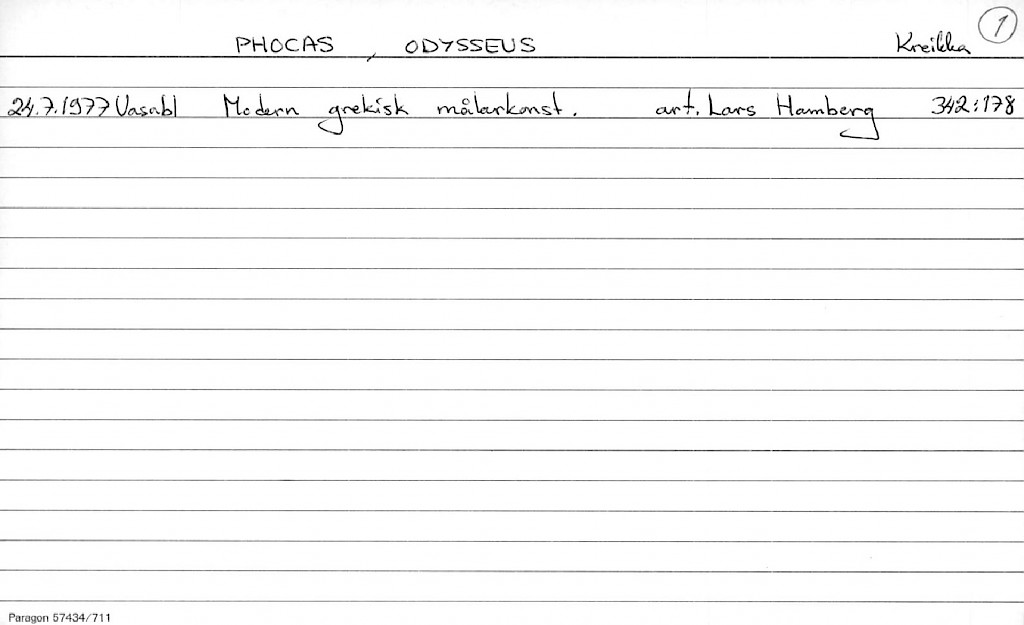 PHOCAS, ODYSSEUS Kreikka 1
24.7.1977 Vasabl Modern grekisk målarkonst. art. Lars Hamberg 342:178
Paragon 57434/711